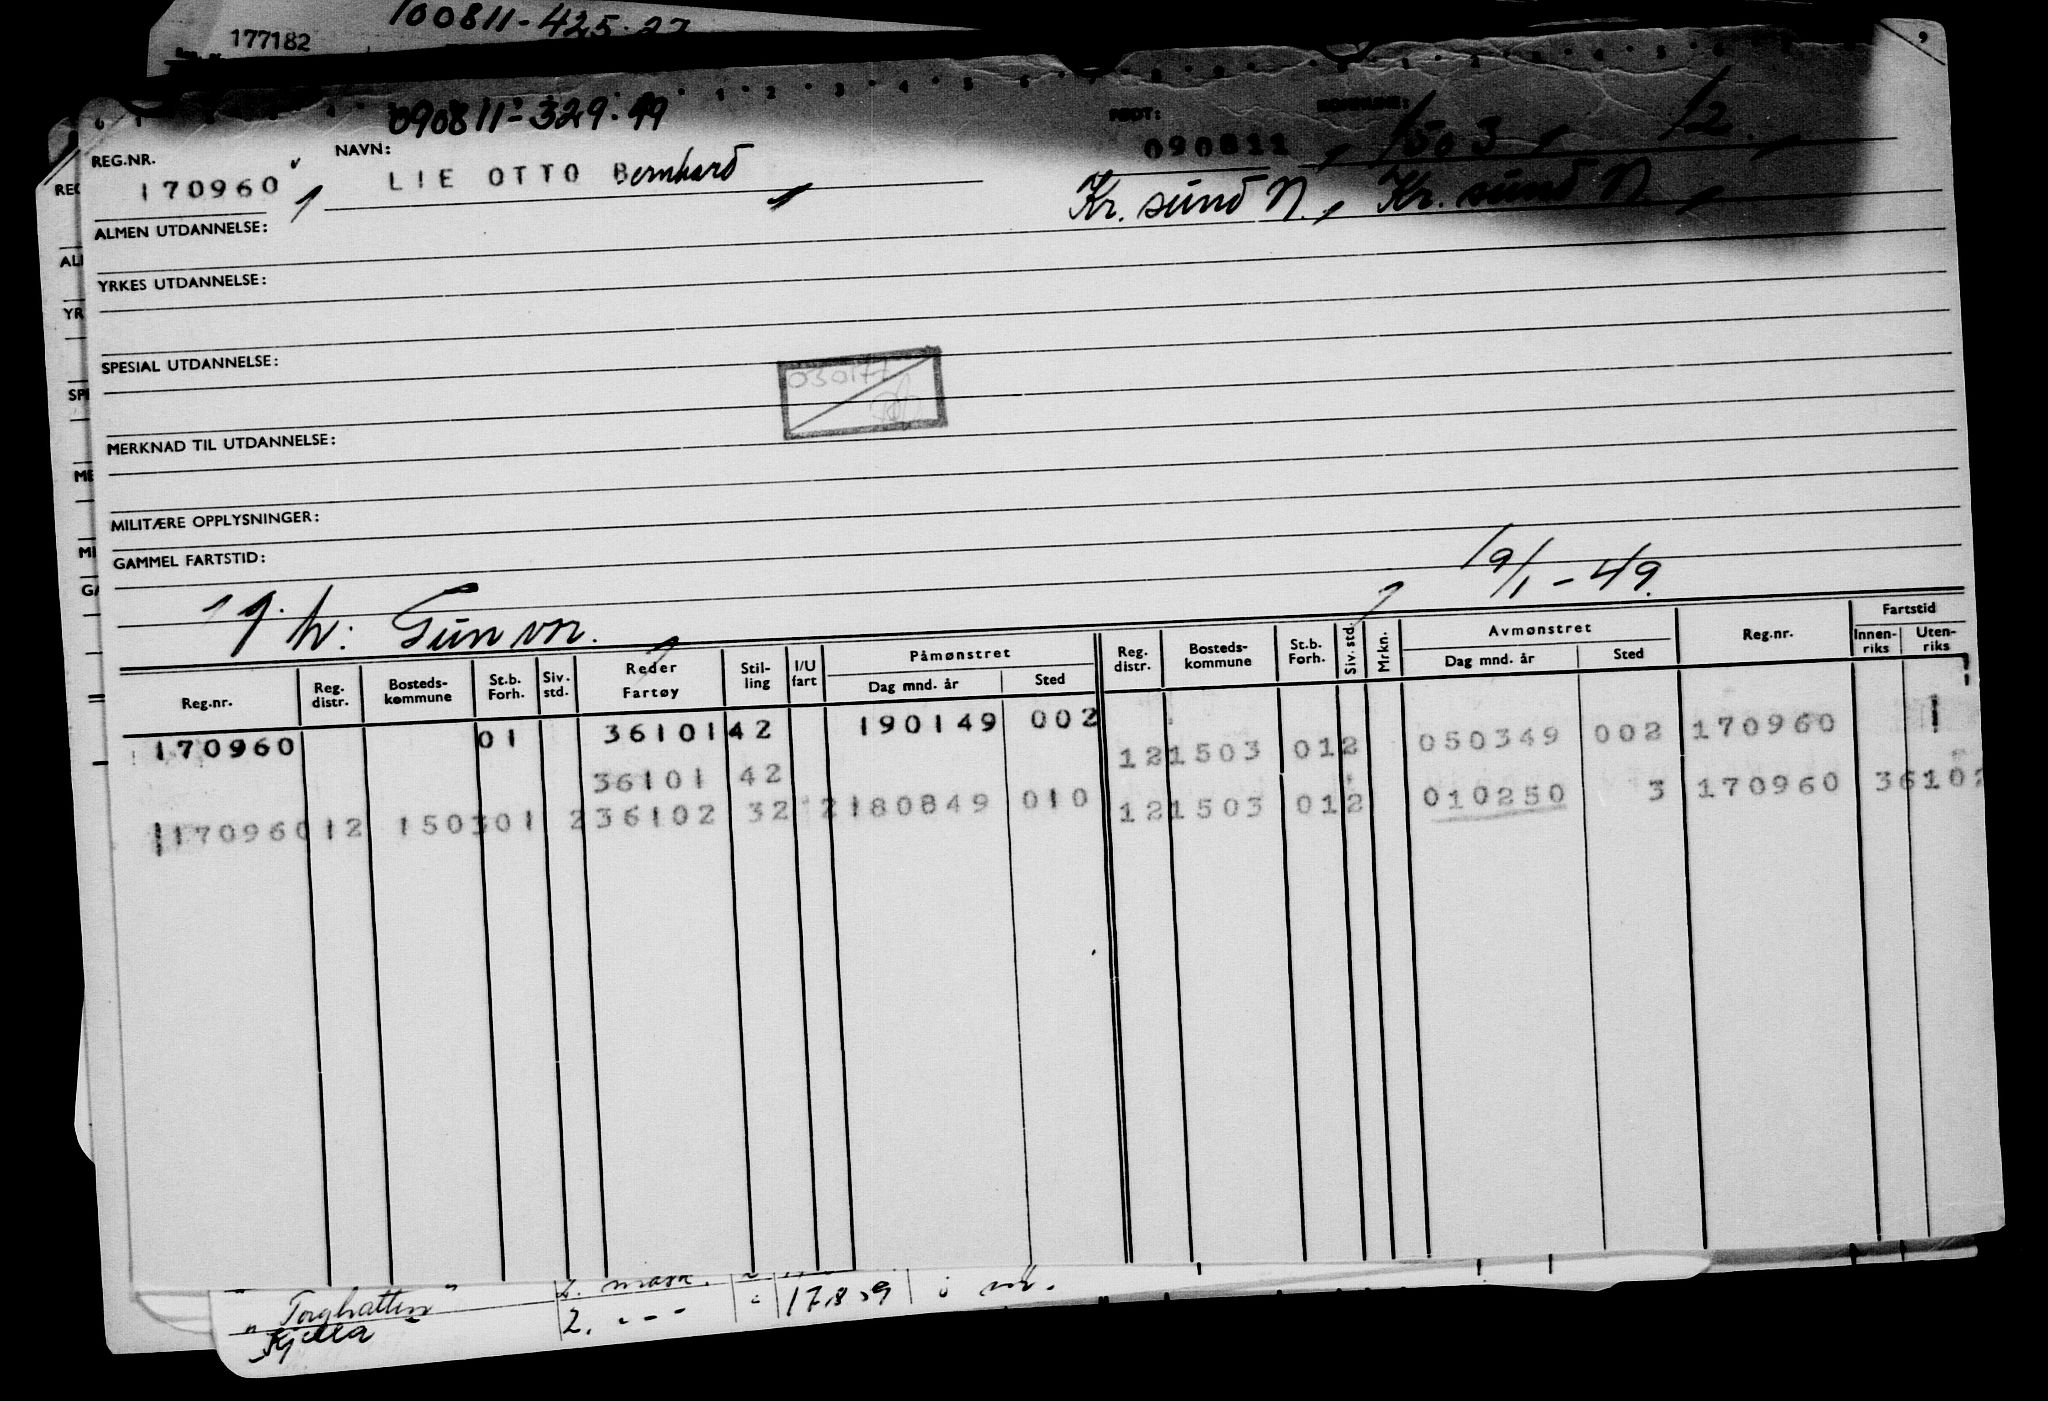 100811-425.27
177182
090811-329.99
REG.NR.
NAVN:
FØDT:
KOMMUNE:
170960
LIE OTTO Bernhard
090811
1503
12
Kr. sund N.
Kr. sund N.
ALMEN UTDANNELSE:
YRKES UTDANNELSE:
SPESIAL UTDANNELSE:
030177
MERKNAD TIL UTDANNELSE:
MILITÆRE OPPLYSNINGER:
GAMMEL FARTSTID:
19/1-49.
Gunvor.
Reg.nr. Reg. distr. Bosteds- kommune St.b. Forh. Siv. std. Reder Fartøy Stil- ling I/U fart Påmønstret Dag mnd. år Sted Reg. distr. Bosteds- kommune St.b. Forh. Siv. std. Mrkn. Avmønstret Dag mnd. år Sted Reg.nr. Fartstid Innen- riks Uten- riks
170960 01 36101 42 190149 002
121503 012 050349 002 170960 1
36101 42
117096012 150301 236102 32 2180849 010
121503 012 010250 3 170960 36102
"Torghatten" 2. mask.
Kjella 2. - - 17.8.39